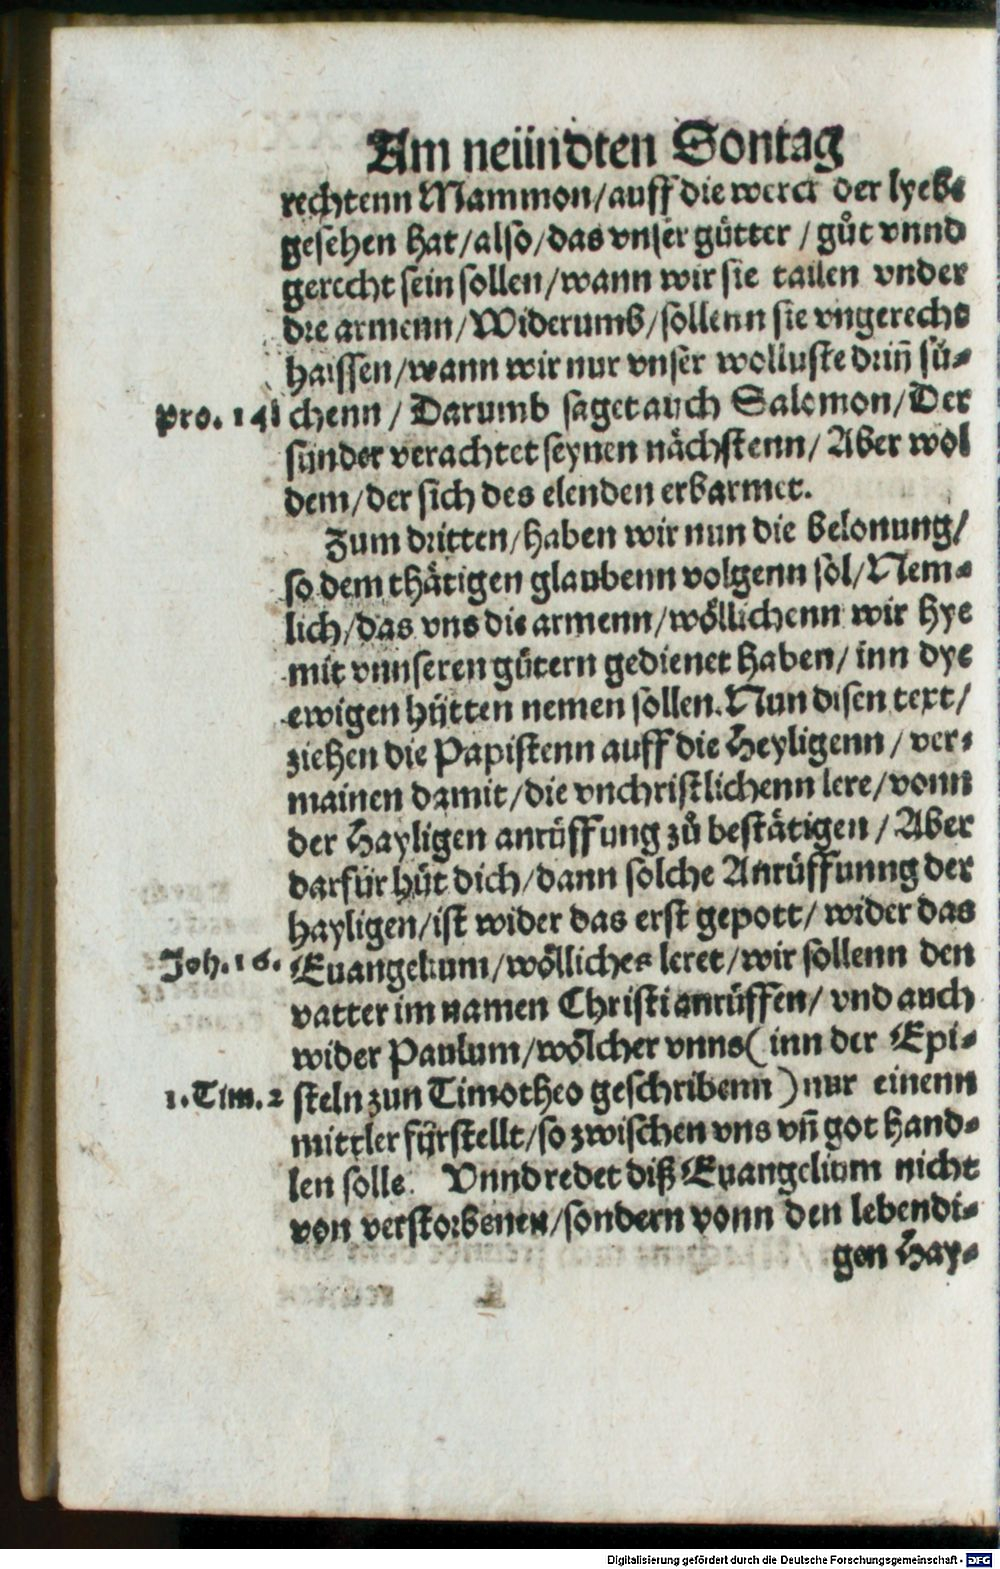 Am neündten Sontag
rechtenn Mammon/auff die werck der lyebe
gesehen hat/also/das vnser gütter/gůt vnnd
gerecht sein sollen/wann wir sie tailen vnder
die armenn/Widerumb/sollenn sie vngerecht
haissen/wann wir nur vnser wolluste drin̄ sů-
Pro. 14 chenn/Darumb saget auch Salomon/Der
sünder verachtet seynen nächstenn/Aber wol
dem/der sich des elenden erbarmet.
Zum dritten/haben wir nun die belonung/
so dem thätigen glaubenn volgenn sol/Nem-
lich/das vns die armenn/wöllichenn wir hye
mit vnnseren gütern gedienet haben/inn dye
ewigen hütten nemen sollen. Nun disen text/
ziehen die Papistenn auff die Heyligenn/ver-
mainen damit/die vnchristlichenn lere/vonn
der Hayligen anrüffung zů bestätigen/Aber
darfür hüt dich/dann solche Anrüffunng der
hayligen/ist wider das erst gepott/wider das
Joh. 16. Euangelium/wölliches leret/wir sollenn den
vatter im namen Christi anrüffen/vnd auch
wider Paulum/wölcher vnns (inn der Epi-
1. Tim. 2 steln zun Timotheo geschribenn) nur einenn
mittler fürstellt/so zwischen vns vn̄ got hand-
len solle. Vnnd redet diß Euangelium nicht
von verstorbenen/sondern vonn den lebendi-
gen Hay-
Digitalisierung gefördert durch die Deutsche Forschungsgemeinschaft - DFG